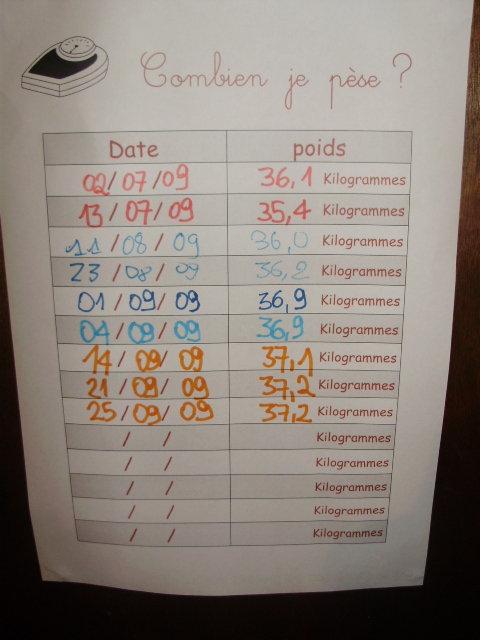 Combien je pèse ?
Date poids
02/07/09 36,1 Kilogrammes
13/07/09 35,4 Kilogrammes
11/08/09 36,0 Kilogrammes
23/08/09 36,2 Kilogrammes
01/09/09 36,9 Kilogrammes
04/09/09 36,9 Kilogrammes
14/09/09 37,1 Kilogrammes
21/09/09 37,2 Kilogrammes
25/09/09 37,2 Kilogrammes
/ / Kilogrammes
/ / Kilogrammes
/ / Kilogrammes
/ / Kilogrammes
/ / Kilogrammes